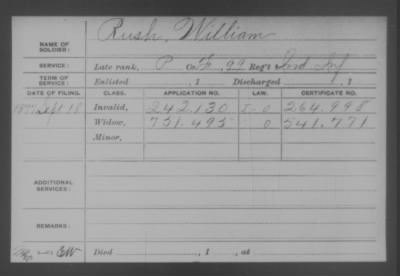 Rush, William
NAME OF SOLDIER:
SERVICE: Late rank, P Co. F, 99 Reg't Ind Inf
TERM OF SERVICE: Enlisted , 1 Discharged , 1
DATE OF FILING. CLASS. APPLICATION NO. LAW. CERTIFICATE NO.
1877 Sept 18 Invalid, 242.130 264.998
Widow, 751.495 541.771
Minor,
ADDITIONAL SERVICES:
REMARKS:
Died , 1 , at